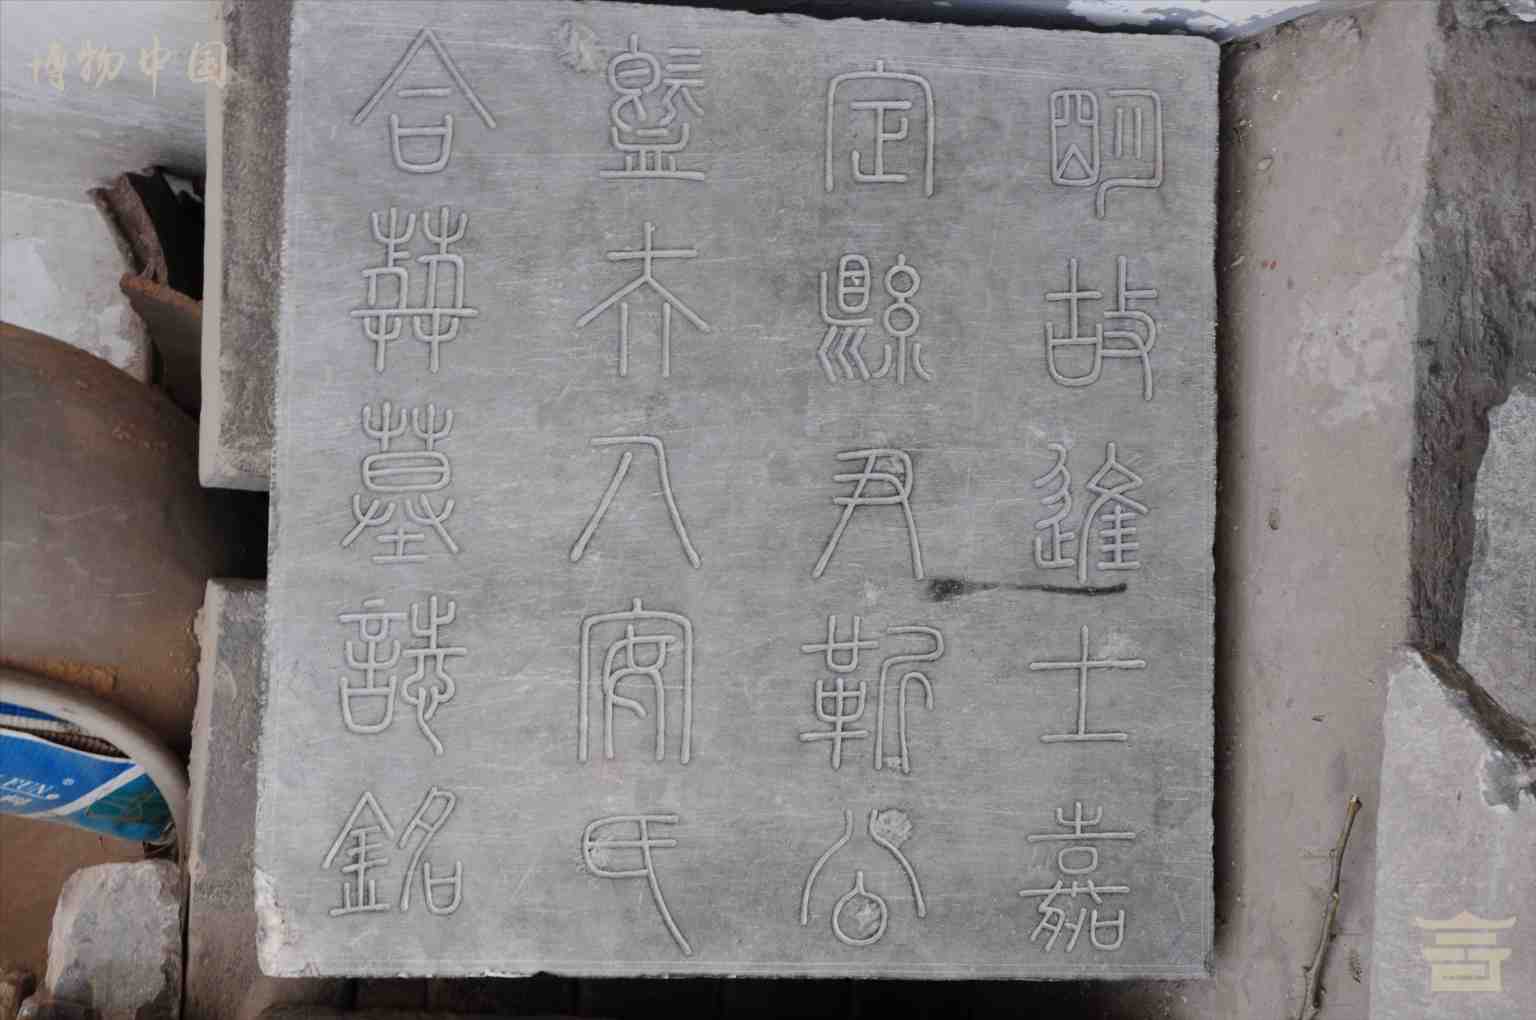 明故進士嘉
定縣尹靳公
暨夫人安氏
合葬墓誌銘
博物中国